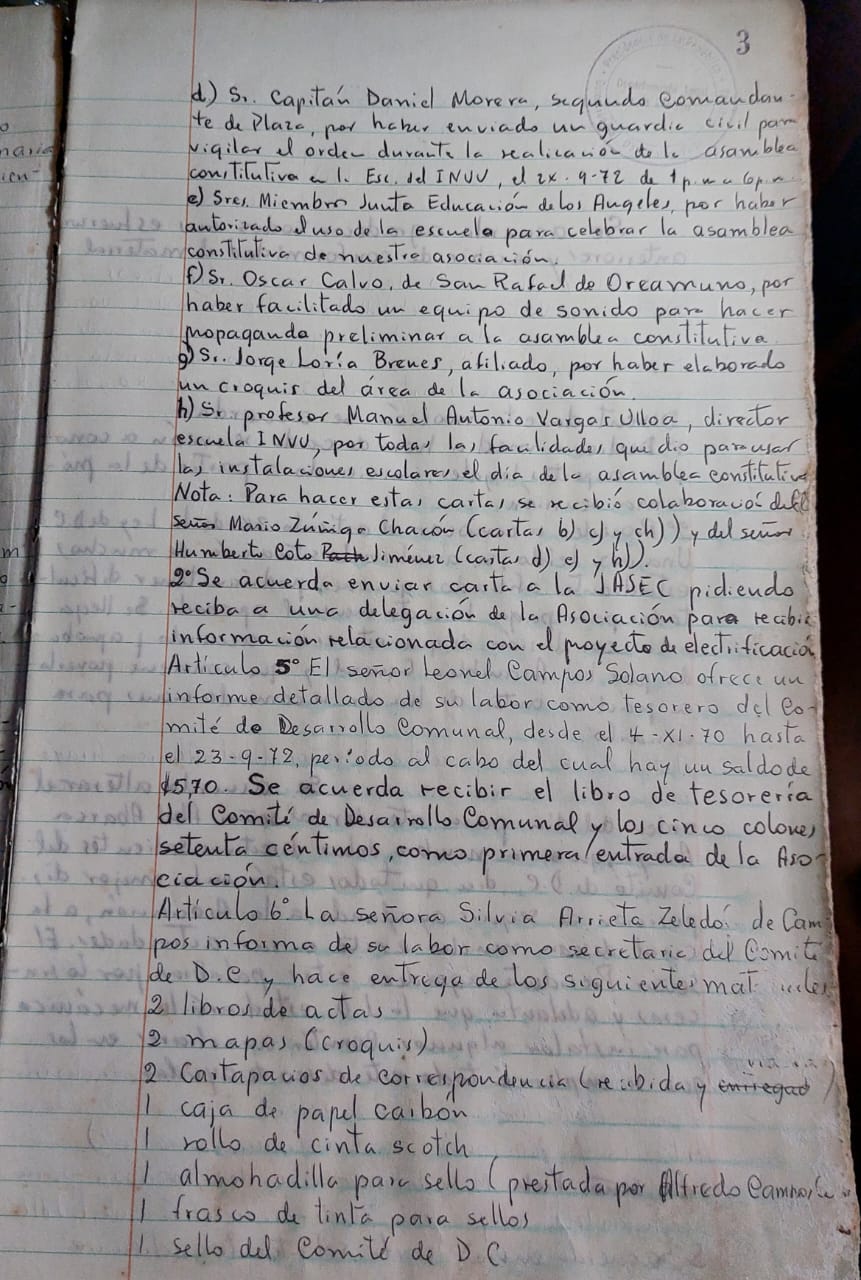 3
d) Sr. Capitán Daniel Morera, segundo Comandan-
te de Plaza, por haber enviado un guardia civil para
vigilar el orden durante la realización de la asamblea
constitutiva en la Esc. del INVU, el 2x-9-72 de 1 p.m a 6 p.m
e) Sres. Miembros Junta Educación de los Angeles, por haber
autorizado el uso de la escuela para celebrar la asamblea
constitutiva de nuestra asociación.
f) Sr. Oscar Calvo, de San Rafael de Oreamuno, por
haber facilitado un equipo de sonido para hacer
propaganda preliminar a la asamblea constitutiva
g) Sr. Jorge Loría Brenes, afiliado, por haber elaborado
un croquis del área de la asociación.
h) Sr. profesor Manuel Antonio Vargas Ulloa, director
escuela INVU, por todas las facilidades que dio para usar
las instalaciones escolares el día de la asamblea constitutiva
Nota: Para hacer estas cartas se recibió colaboración del
señor Mario Zúñiga Chacón (cartas b) c) y ch)) y del señor
Humberto Coto Jiménez (cartas d) e) y h)).
2º Se acuerda enviar carta a la JASEC pidiendo
reciba a una delegación de la Asociación para recibir
información relacionada con el proyecto de electrificación
Artículo 5º El señor Leonel Campos Solano ofrece un
informe detallado de su labor como tesorero del Co-
mité de Desarrollo Comunal, desde el 4-XI-70 hasta
el 23-9-72, período al cabo del cual hay un saldo de
₡5,70. Se acuerda recibir el libro de tesorería
del Comité de Desarrollo Comunal y los cinco colones
setenta céntimos, como primera entrada de la Aso-
ciación.
Artículo 6º La señora Silvia Arrieta Zeledón de Cam
pos informa de su labor como secretaria del Comité
de D.C y hace entrega de los siguientes materiales
2 libros de actas
2 mapas (croquis)
2 Cartapacios de correspondencia (recibida y entregad)
1 caja de papel carbón
1 rollo de cinta scotch
1 almohadilla para sello (prestada por Alfredo Campos
1 frasco de tinta para sellos
1 sello del Comité de D.C